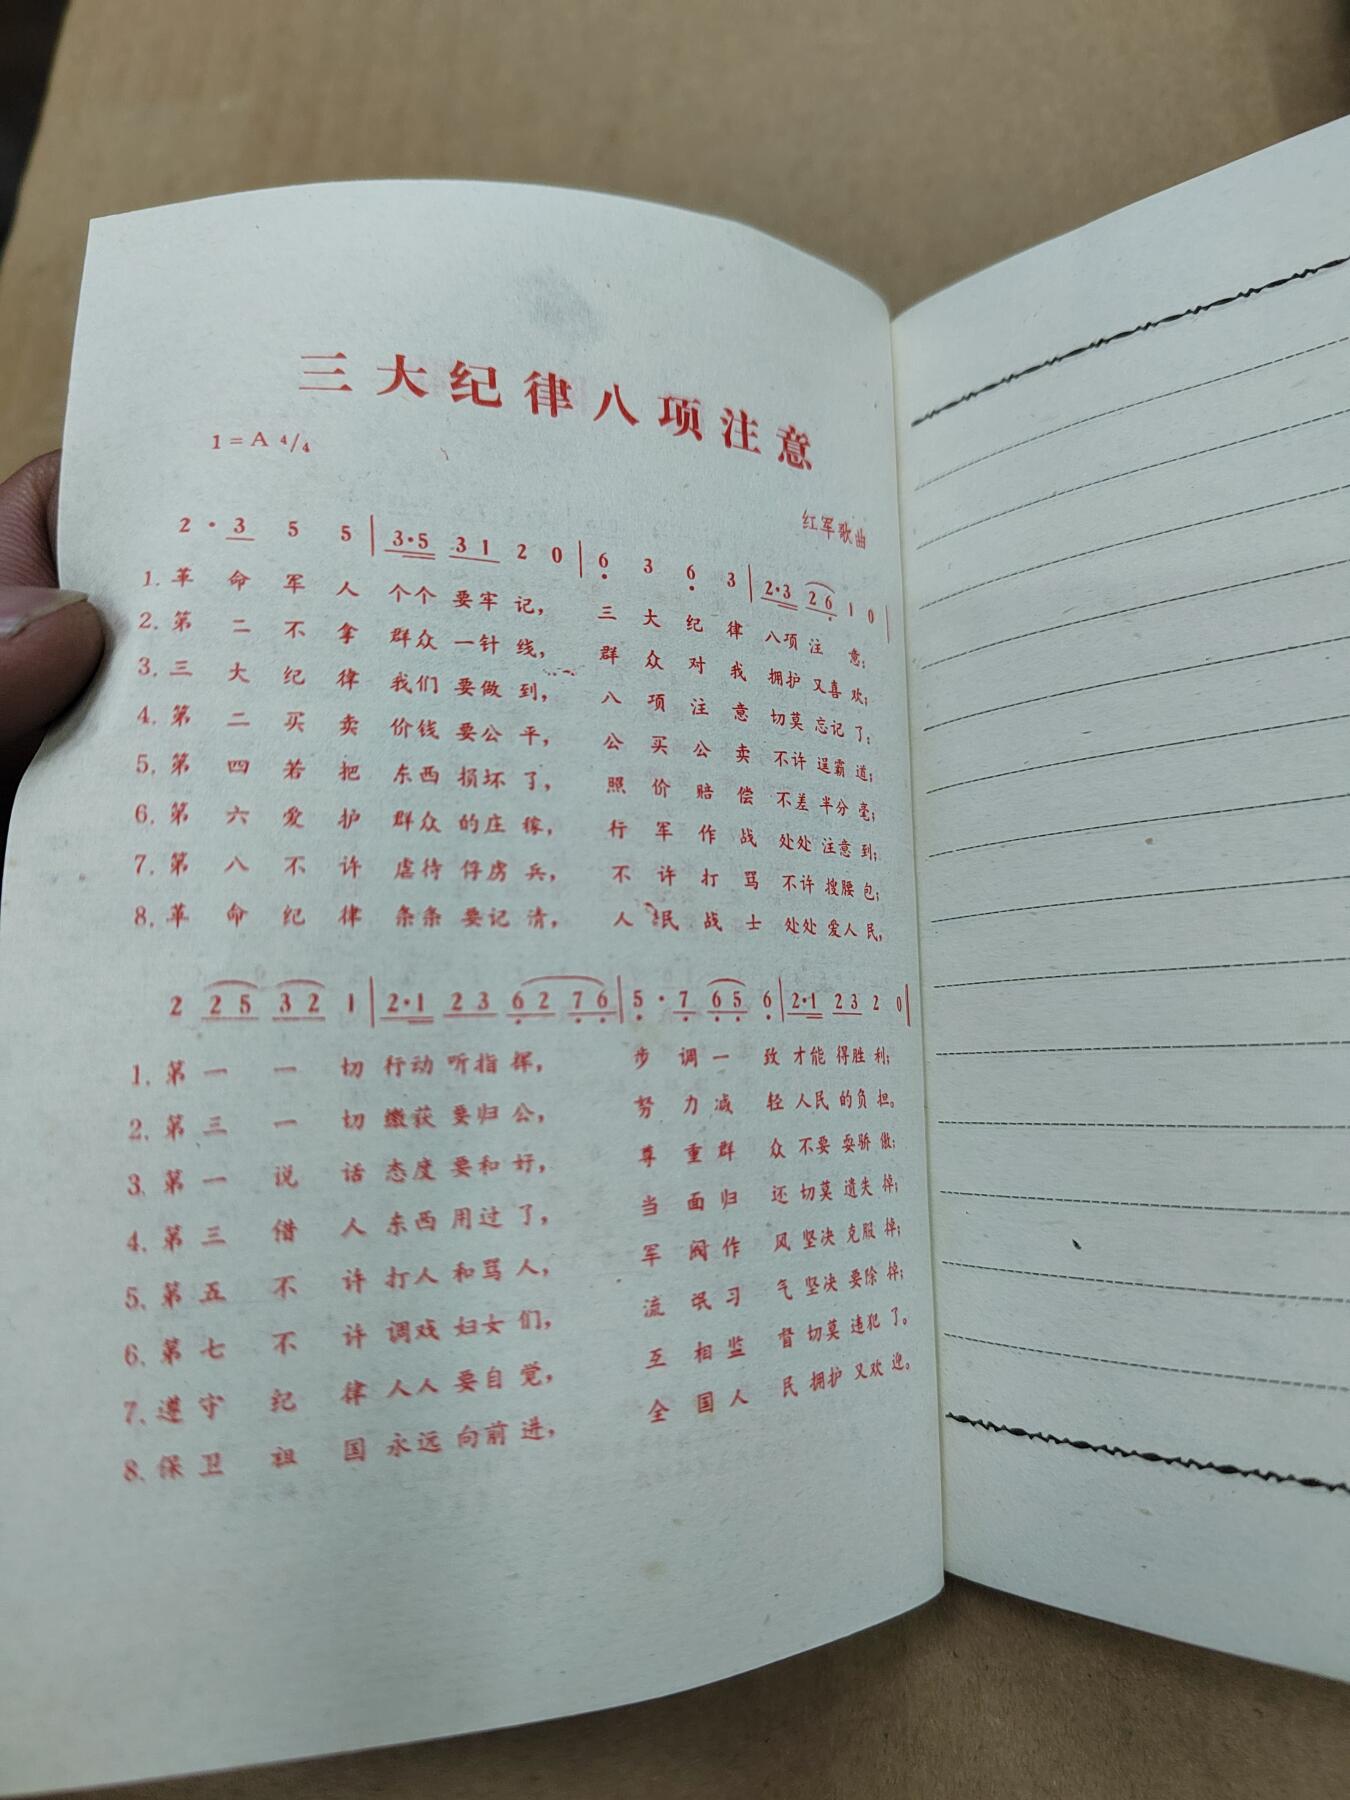 三大纪律八项注意
1=A 4/4
红军歌曲
2·3 5 5 | 3·5 31 2 0 | 6 3 6 3 | 2·3 26 1 0 |
1.革命军人个个要牢记，三大纪律八项注意；
2.第二不拿群众一针线，群众对我拥护又喜欢；
3.三大纪律我们要做到，八项注意切莫忘记了；
4.第二买卖价钱要公平，公买公卖不许逞霸道；
5.第四若把东西损坏了，照价赔偿不差半分毫；
6.第六爱护群众的庄稼，行军作战处处注意到；
7.第八不许虐待俘虏兵，不许打骂不许搜腰包；
8.革命纪律条条要记清，人民战士处处爱人民，
2 25 32 1 | 2·1 23 62 76 | 5·7 65 6 | 2·1 23 2 0 |
1.第一一切行动听指挥，步调一致才能得胜利；
2.第三一切缴获要归公，努力减轻人民的负担。
3.第一说话态度要和好，尊重群众不要耍骄傲；
4.第三借人东西用过了，当面归还切莫遗失掉；
5.第五不许打人和骂人，军阀作风坚决克服掉；
6.第七不许调戏妇女们，流氓习气坚决要除掉；
7.遵守纪律人人要自觉，互相监督切莫违犯了。
8.保卫祖国永远向前进，全国人民拥护又欢迎。